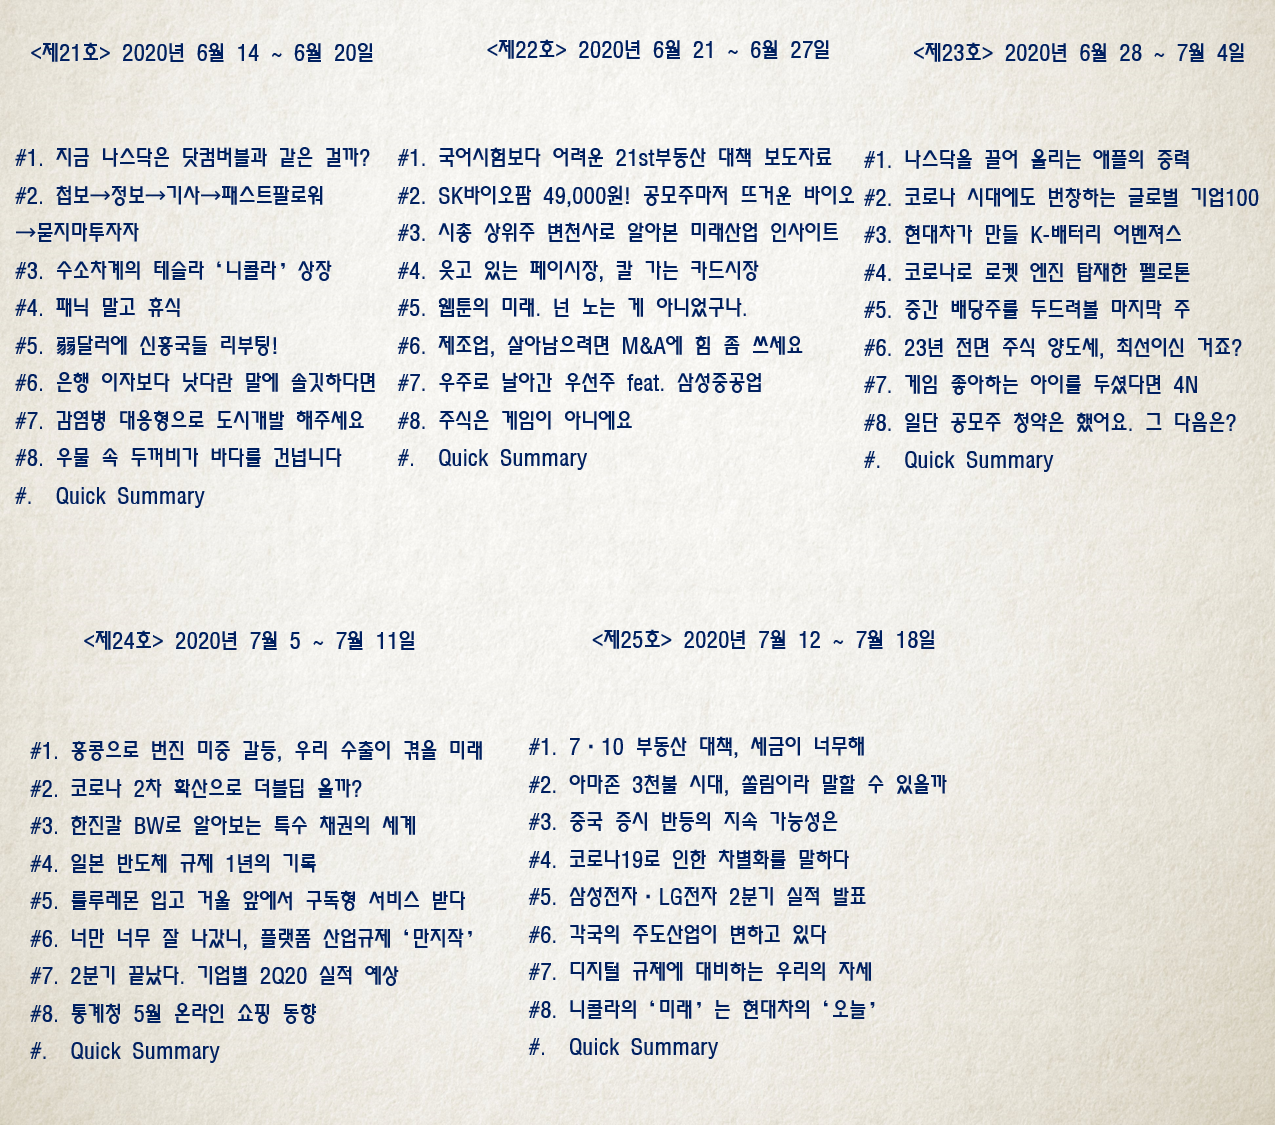 <제21호> 2020년 6월 14 ~ 6월 20일
#1. 지금 나스닥은 닷컴버블과 같은 걸까?
#2. 첩보→정보→기사→패스트팔로워
→묻지마투자자
#3. 수소차계의 테슬라 ‘니콜라’ 상장
#4. 패닉 말고 휴식
#5. 弱달러에 신흥국들 리부팅!
#6. 은행 이자보다 낫다란 말에 솔깃하다면
#7. 감염병 대응형으로 도시개발 해주세요
#8. 우물 속 두꺼비가 바다를 건넙니다
#. Quick Summary
<제22호> 2020년 6월 21 ~ 6월 27일
#1. 국어시험보다 어려운 21st부동산 대책 보도자료
#2. SK바이오팜 49,000원! 공모주마저 뜨거운 바이오
#3. 시총 상위주 변천사로 알아본 미래산업 인사이트
#4. 웃고 있는 페이시장, 칼 가는 카드시장
#5. 웹툰의 미래. 넌 노는 게 아니었구나.
#6. 제조업, 살아남으려면 M&A에 힘 좀 쓰세요
#7. 우주로 날아간 우선주 feat. 삼성중공업
#8. 주식은 게임이 아니에요
#. Quick Summary
<제23호> 2020년 6월 28 ~ 7월 4일
#1. 나스닥을 끌어 올리는 애플의 중력
#2. 코로나 시대에도 번창하는 글로벌 기업100
#3. 현대차가 만들 K-배터리 어벤져스
#4. 코로나로 로켓 엔진 탑재한 펠로톤
#5. 중간 배당주를 두드려볼 마지막 주
#6. 23년 전면 주식 양도세, 최선이신 거죠?
#7. 게임 좋아하는 아이를 두셨다면 4N
#8. 일단 공모주 청약은 했어요. 그 다음은?
#. Quick Summary
<제24호> 2020년 7월 5 ~ 7월 11일
#1. 홍콩으로 번진 미중 갈등, 우리 수출이 겪을 미래
#2. 코로나 2차 확산으로 더블딥 올까?
#3. 한진칼 BW로 알아보는 특수 채권의 세계
#4. 일본 반도체 규제 1년의 기록
#5. 룰루레몬 입고 거울 앞에서 구독형 서비스 받다
#6. 너만 너무 잘 나갔니, 플랫폼 산업규제 ‘만지작’
#7. 2분기 끝났다. 기업별 2Q20 실적 예상
#8. 통계청 5월 온라인 쇼핑 동향
#. Quick Summary
<제25호> 2020년 7월 12 ~ 7월 18일
#1. 7·10 부동산 대책, 세금이 너무해
#2. 아마존 3천불 시대, 쏠림이라 말할 수 있을까
#3. 중국 증시 반등의 지속 가능성은
#4. 코로나19로 인한 차별화를 말하다
#5. 삼성전자·LG전자 2분기 실적 발표
#6. 각국의 주도산업이 변하고 있다
#7. 디지털 규제에 대비하는 우리의 자세
#8. 니콜라의 ‘미래’는 현대차의 ‘오늘’
#. Quick Summary